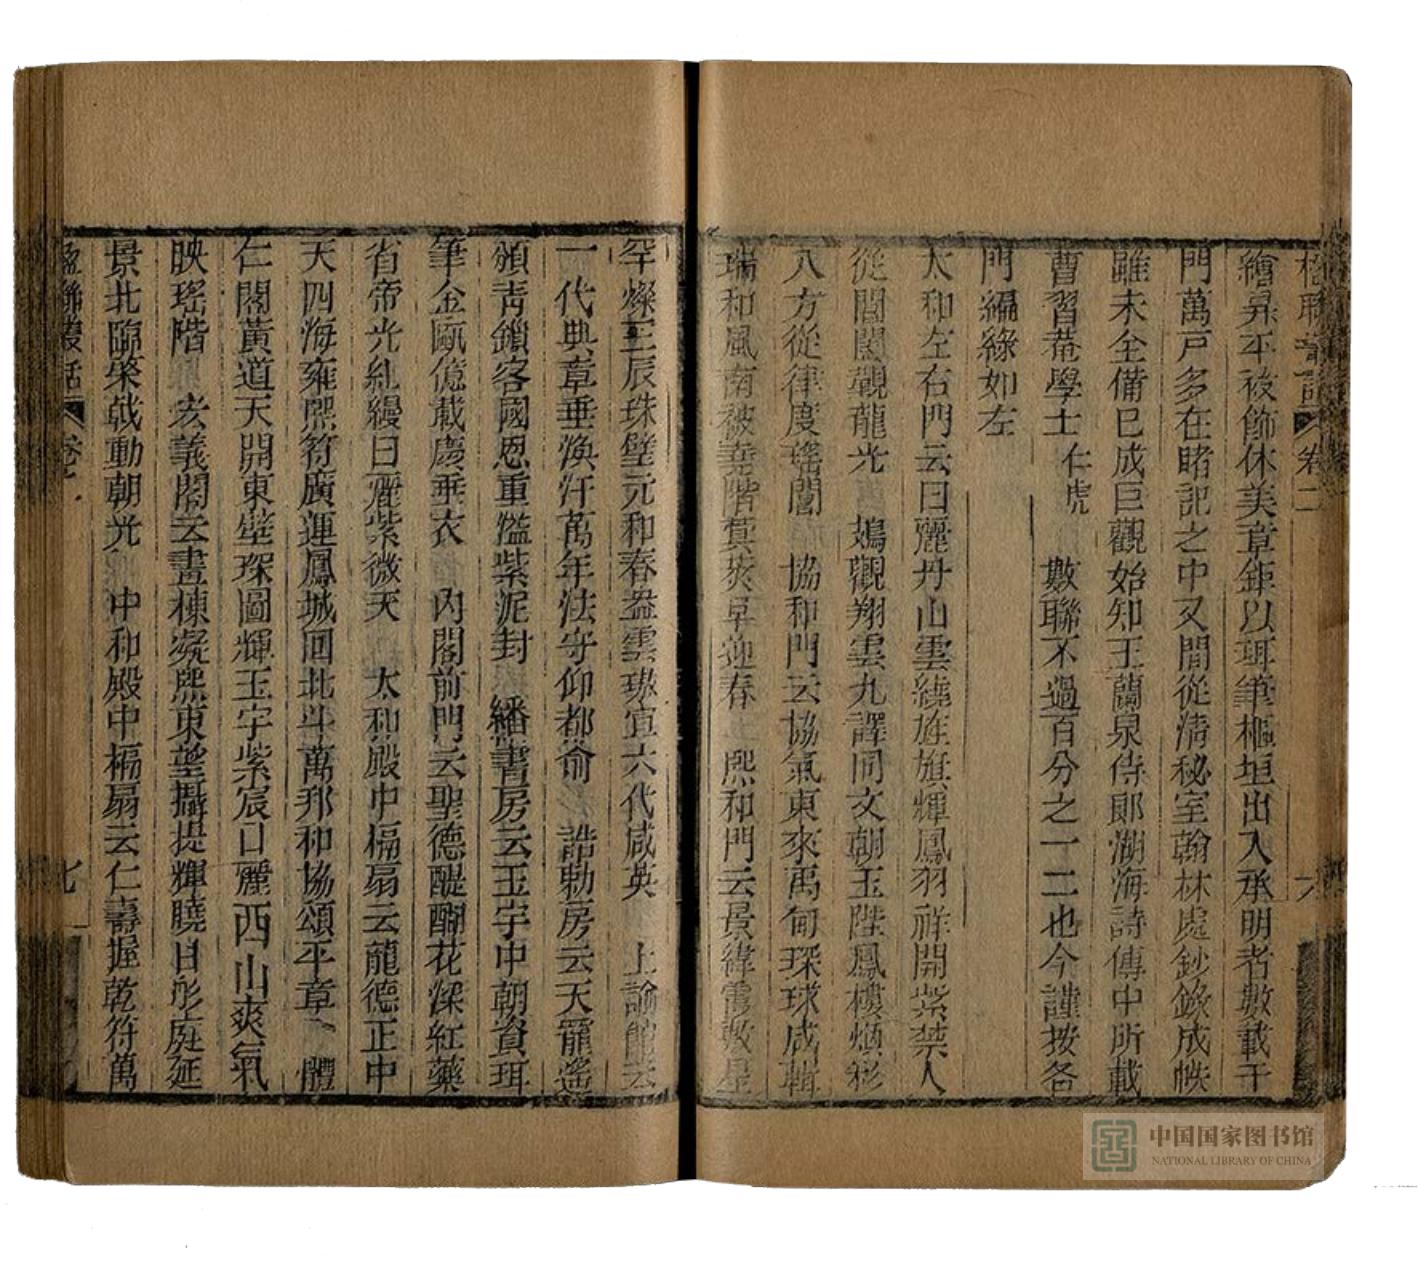 繪昇平被飾休美章鉅以珥筆樞垣出入承明者數載千
門萬戸多在睹記之中又閒從清秘室翰林處鈔錄成帙
雖未全備已成巨觀始知王蘭泉侍郞湖海詩傳中所載
曹習菴學士仁虎數聯不過百分之一二也今謹按各
門編綠如左
太和左右門云日麗丹山雲繞旌旗輝鳳羽祥開紫禁人
從閶闔觀龍光 鳷觀翔雲九譯同文朝玉陛鳳樓煥彩
八方從律度瑤閶 協和門云協氣東來禹甸琛球咸輯
瑞和風南被堯階蓂莢早迎春 熙和門云景緯霞敷星
罕燦三辰珠璧元和春盎雲璈宣六代咸英 上諭館云
一代典章垂渙汗萬年法守仰都兪 誥勅房云天寵遙
頒靑鎖客國恩重濫紫泥封 繙書房云玉宇中朝資珥
筆金甌億載慶垂衣 內閣前門云聖德醲醐花深紅藥
省帝光糺縵日麗紫微天 太和殿中槅扇云龍德正中
天四海雍熙符廣運鳳城回北斗萬邦和協頌平章 體
仁閣黃道天開東壁琛圖輝玉宇紫宸日麗西山爽氣
映瑤階 宏義閣云畫棟凝熙東望攝提輝曉日彤庭延
景北臨榮戟動朝光 中和殿中槅扇云仁壽握乾符萬
楹聯叢話 卷二 六
楹聯叢話 卷二 七
中国国家图书馆
NATIONAL LIBRARY OF CHINA